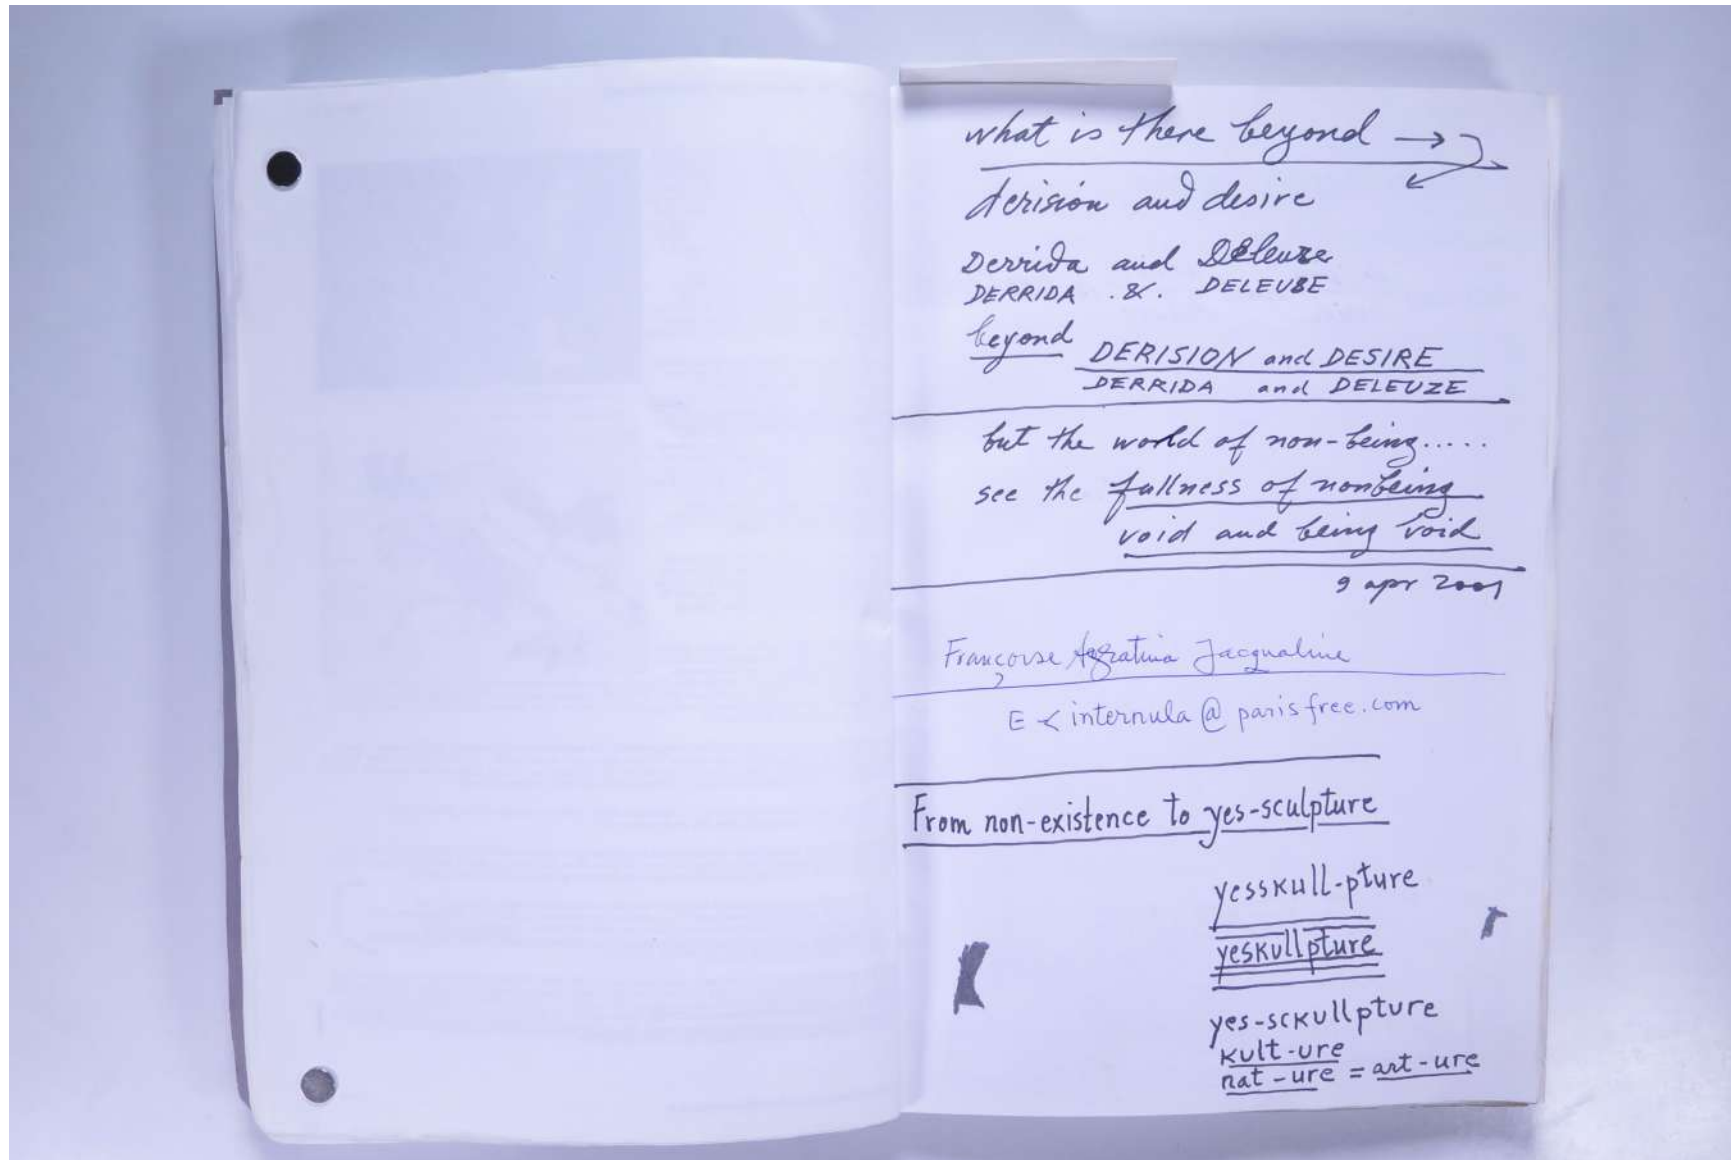 what is there beyond →
derision and desire
Derrida and Deleuze
DERRIDA .&. DELEUZE
beyond DERISION and DESIRE
DERRIDA and DELEUZE
but the world of non-being.....
see the fullness of nonbeing
void and being void
9 apr 2001
Françoise Jacqualine
E < internula@parisfree.com
From non-existence to yes-sculpture
yesskull-pture
yeskullpture
yes-sckullpture
kult-ure
nat-ure = art-ure